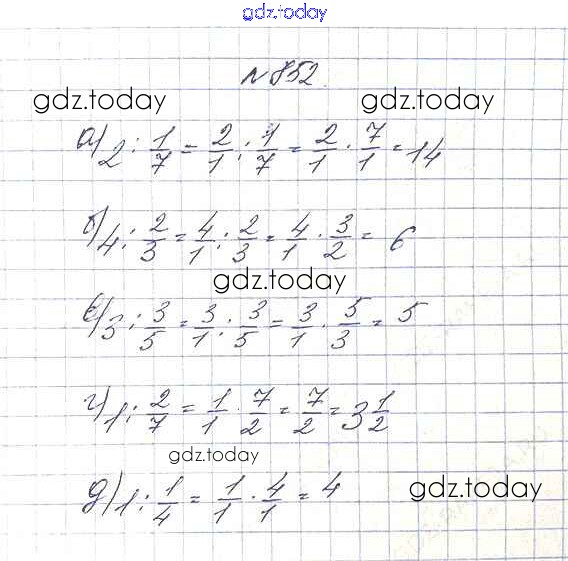 gdz.today
№ 852
gdz.today gdz.today
а) 2 : 1/7 = 2/1 : 1/7 = 2/1 · 7/1 = 14
б) 4 : 2/3 = 4/1 : 2/3 = 4/1 · 3/2 = 6
gdz.today
в) 3 : 3/5 = 3/1 : 3/5 = 3/1 · 5/3 = 5
г) 1 : 2/7 = 1/1 · 7/2 = 7/2 = 3 1/2
gdz.today
д) 1 : 1/4 = 1/1 · 4/1 = 4
gdz.today